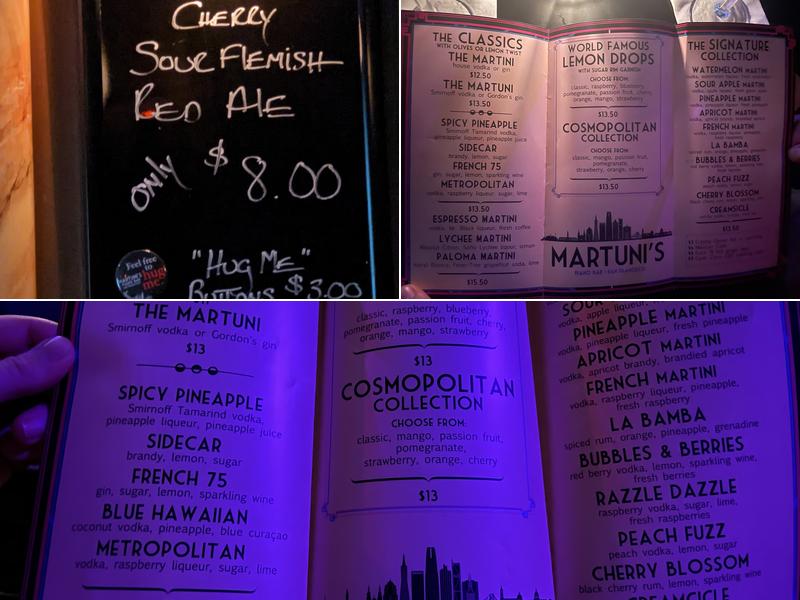 CHERRY
SOUR FLEMISH
RED ALE
only $8.00
Feel free
to
hug
me.
"HUG ME"
BUTTONS $3.00
THE CLASSICS
WITH OLIVES OR LEMON TWIST
THE MARTINI
house vodka or gin
$12.50
THE MARTUNI
Smirnoff vodka or Gordon's gin
$13.50
SPICY PINEAPPLE
Smirnoff Tamarind vodka,
pineapple liqueur, pineapple juice
SIDECAR
brandy, lemon, sugar
FRENCH 75
gin, sugar, lemon, sparkling wine
METROPOLITAN
vodka, raspberry liqueur, sugar, lime
$13.50
ESPRESSO MARTINI
vodka, Mr. Black liqueur, fresh coffee
LYCHEE MARTINI
PALOMA MARTINI
$15.50
WORLD FAMOUS
LEMON DROPS
WITH SUGAR RIM GARNISH
CHOOSE FROM:
classic, raspberry, blueberry,
pomegranate, passion fruit, cherry,
orange, mango, strawberry
$13.50
COSMOPOLITAN
COLLECTION
CHOOSE FROM:
classic, mango, passion fruit,
pomegranate,
strawberry, orange, cherry
$13.50
MARTUNI'S
PIANO BAR • SAN FRANCISCO
THE SIGNATURE
COLLECTION
WATERMELON MARTINI
SOUR APPLE MARTINI
PINEAPPLE MARTINI
APRICOT MARTINI
FRENCH MARTINI
LA BAMBA
BUBBLES & BERRIES
PEACH FUZZ
CHERRY BLOSSOM
CREAMSICLE
$13.50
THE MARTUNI
Smirnoff vodka or Gordon's gin
$13
SPICY PINEAPPLE
Smirnoff Tamarind vodka,
pineapple liqueur, pineapple juice
SIDECAR
brandy, lemon, sugar
FRENCH 75
gin, sugar, lemon, sparkling wine
BLUE HAWAIIAN
coconut vodka, pineapple, blue curaçao
METROPOLITAN
vodka, raspberry liqueur, sugar, lime
classic, raspberry, blueberry,
pomegranate, passion fruit, cherry,
orange, mango, strawberry
$13
COSMOPOLITAN
COLLECTION
CHOOSE FROM:
classic, mango, passion fruit,
pomegranate,
strawberry, orange, cherry
$13
SOUR
vodka, apple liqueur,
PINEAPPLE MARTINI
vodka, pineapple liqueur, fresh pineapple
APRICOT MARTINI
vodka, apricot brandy, brandied apricot
FRENCH MARTINI
vodka, raspberry liqueur, pineapple,
fresh raspberry
LA BAMBA
spiced rum, orange, pineapple, grenadine
BUBBLES & BERRIES
red berry vodka, lemon, sparkling wine,
fresh berries
RAZZLE DAZZLE
raspberry vodka, sugar, lime,
fresh raspberries
PEACH FUZZ
peach vodka, lemon, sugar
CHERRY BLOSSOM
black cherry rum, lemon, sparkling wine
CREAMSICLE